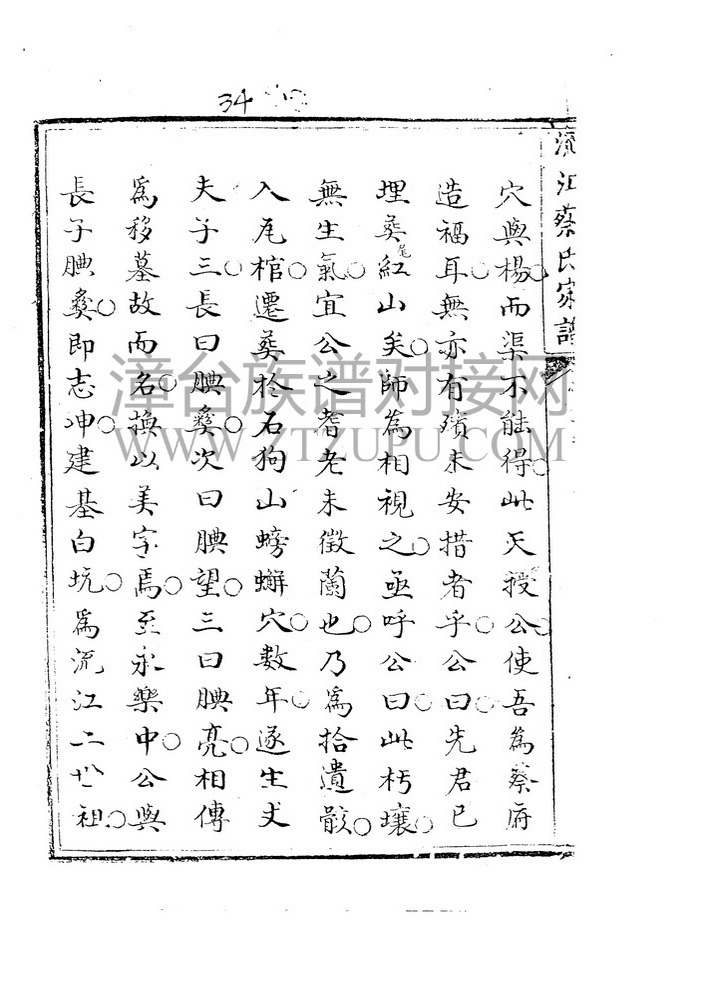 34
流江蔡氏家譜
穴與楊○而渠不能得○此天授公○使吾為蔡府
造福耳○無亦有殯未安措者乎○公曰○先君已
埋葬尾紅山矣○師為相視之○亟呼公曰○此朽壤○
無生氣○宜公之耆老未徵蘭也○乃為拾遺骸○
入瓦棺○遷葬於石狗山螃蠏穴○數年○遂生丈
夫子三○長曰腆彝○次曰腆望○三曰腆亮○相傳
為移墓故而名○換以美字焉○至永樂中○公與
長子腆彝○即志冲○建基白坑○為流江二世祖○
漳台族谱对接网
WWW.ZTZUPU.COM